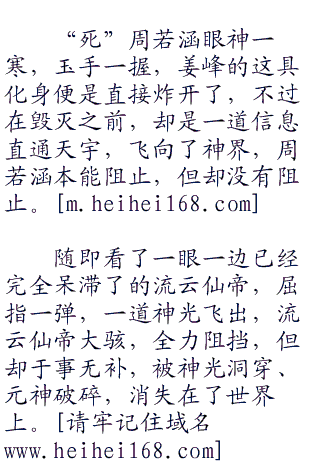 “死”周若涵眼神一
寒，玉手一握，姜峰的这具
化身便是直接炸开了，不过
在毁灭之前，却是一道信息
直通天宇，飞向了神界，周
若涵本能阻止，但却没有阻
止。[m.heihei168.com]
随即看了一眼一边已经
完全呆滞了的流云仙帝，屈
指一弹，一道神光飞出，流
云仙帝大骇，全力阻挡，但
却于事无补，被神光洞穿、
元神破碎，消失在了世界
上。[请牢记住域名
www.heihei168.com]